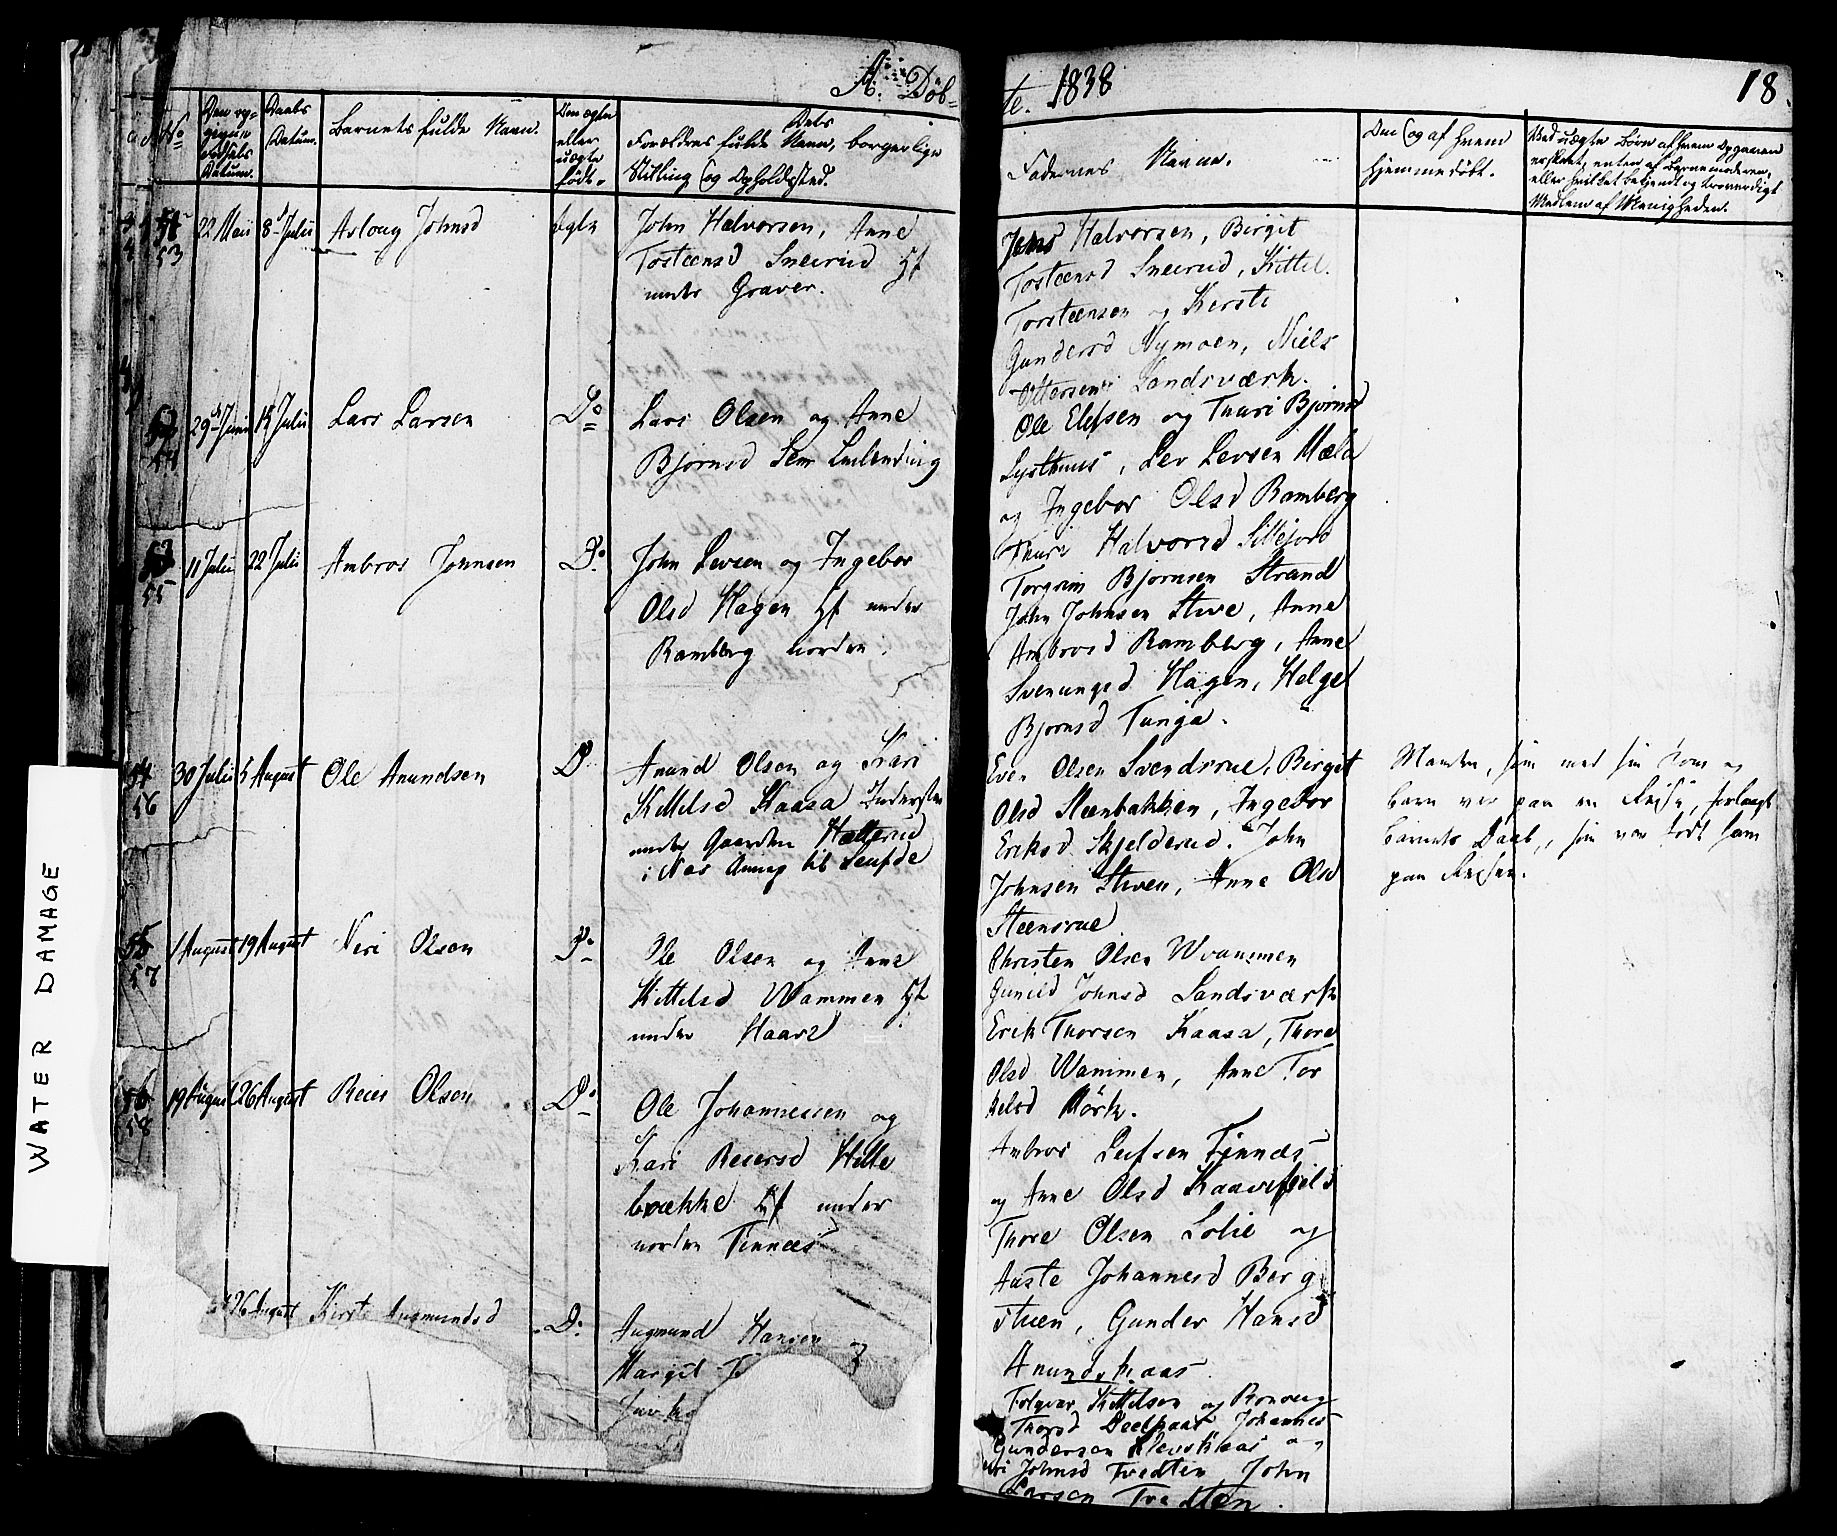 A. Døb-
te. 1838
18.
No
Daabs
Datum.
Barnets fulde Navn.
Om ægte
eller
uægte
født.
Forældres fulde Navn, borgerlige
Stilling og Opholdssted.
Faddernes Navne.
Om og af hvem
hjemmedøbt.
Ved uægte Børn af hvem Opgaven
er skeet, enten af Barnemoderen,
eller hvilket bekjendt og troværdigt
Medlem af Menigheden.
53
22 Maii
8 Julii
Asloug Johnsd
ægte
John Halvorsen, Anne
Tosteensd Sneerud Hf
under Graver.
Jens Halvorsen, Birgit
Tosteensd Sneerud, Kittil
Torsteensen og Kersti
Gundersd Nymoen, Niels
Ottersen Landsværk.
54
29 Junii
15 Julii
Lars Larsen
Do
Lars Olsen og Anne
Bjørnsd Sem
Ole Elefsen og Thuri Bjørnsd
Lysthuus, Lev Levsen Mæla
og Ingebor Olsd Bamberg
Thure Halvorsd Sillejord
55
11 Julii
22 Julii
Ambros Johnsen
Do
John Levsen og Ingebor
Olsd Hagen Hf under
Ramberg norden.
Torgrim Bjørnsen Strand
John Johnsen Stive, Anne
Ambrosd Ramberg, Anne
Svenungsd Hagen, Helge
Bjørnsd Tunga.
54
56
30 Julii
5 August
Ole Anundsen
Do
Anund Olsen og Kari
Kittilsd Kaasa Inderster
under Gaarden Hætterud
i Næs Annex til Seufde
Even Olsen Svendsrue, Birgit
Olsd Steenbakken, Ingebor
Eriksd Skjelderud. John
Johnsen Stiven, Anne Olsd
Steensrue
Manden, som med sin Kone og
Barn var paa en Reise, forlangte
Barnets Daab, som var født ham
paa Reisen.
55
57
1 August
19 August
Neri Olsen
Do
Ole Olsen og Anne
Kittilsd Wammen Hf
under Haave
Christen Olsen Wammen
Gunild Johnsd Landsværk
Erik Thorsen Kaasa, Thore
Olsd Wammen, Anne Tor
kelsd Mörk.
56
58
19 August
26 August
Reier Olsen
Do
Ole Johannessen og
Kari Reiersd Hille
bække Hf under
norden Tinnæs
Ambros Leifsen Tinnæs
og Anne Olsd Kaavefjeld
Thore Olsen Lolie og
Aaste Johannesd Berg
stuen, Gunder Hansd
Anundskaas
26 August
Kirsti Augmundsd
Do
Augmund Hansen og
Margit T
Folqvar Kittilsen og Ronoug
Thorsd Deelkaas Johannes
Gundersen Klevskaas og
Johnsd Tvedten, John
Larsen Tvedten.
WATER DAMAGE